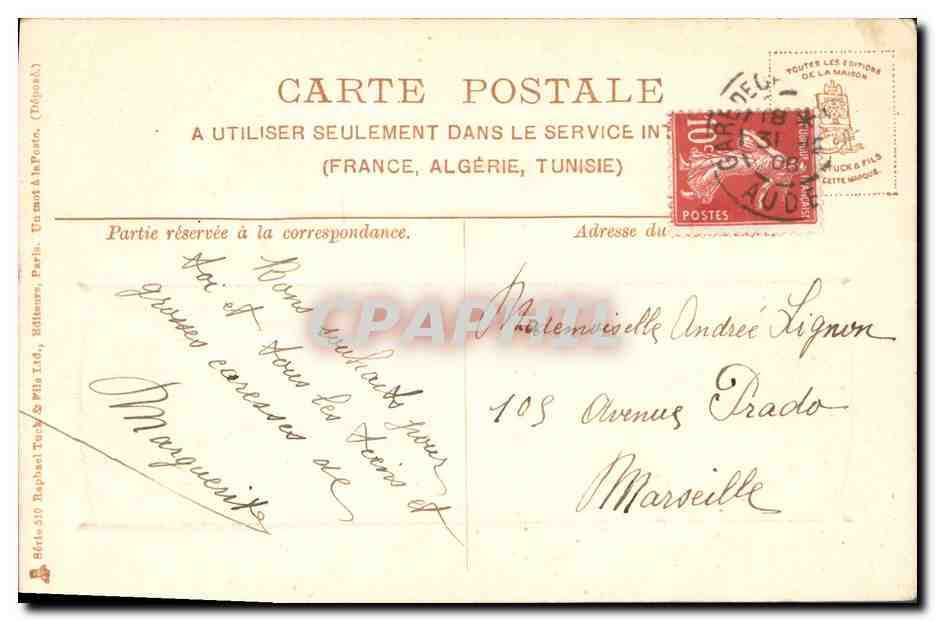 CARTE POSTALE
A UTILISER SEULEMENT DANS LE SERVICE INT
(FRANCE, ALGÉRIE, TUNISIE)
TOUTES LES EDITIONS
DE LA MAISON
TUCK & FILS
CETTE MARQUE.
GARE DE
18
31
08
AUDE
10
POSTES
Partie réservée à la correspondance.
Adresse du
Bons souhaits pour
toi et tous les tiens et
grosses caresses de
Marguerite
CPAPHIL
Mademoiselle Andrée Lignon
105 Avenue Prado
Marseille
Série 510 Raphael Tuck & Fils Ltd., Editeurs, Paris. Un mot à la Poste. (Déposé.)